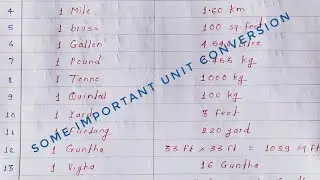 4 1 Mile 1.60 km
5 1 brass 100 sq.feet
6 1 Gallon
7 1 Pound
8 1 Tenne 1000 kg
9 1 Quintal 100 kg
10 1 Yard 3 feet
220 yard
12 1 Guntha 33 ft x 33 ft = 1089 sq.ft
13 1 Vigha 16 Guntha
SOME IMPORTANT UNIT CONVERSION